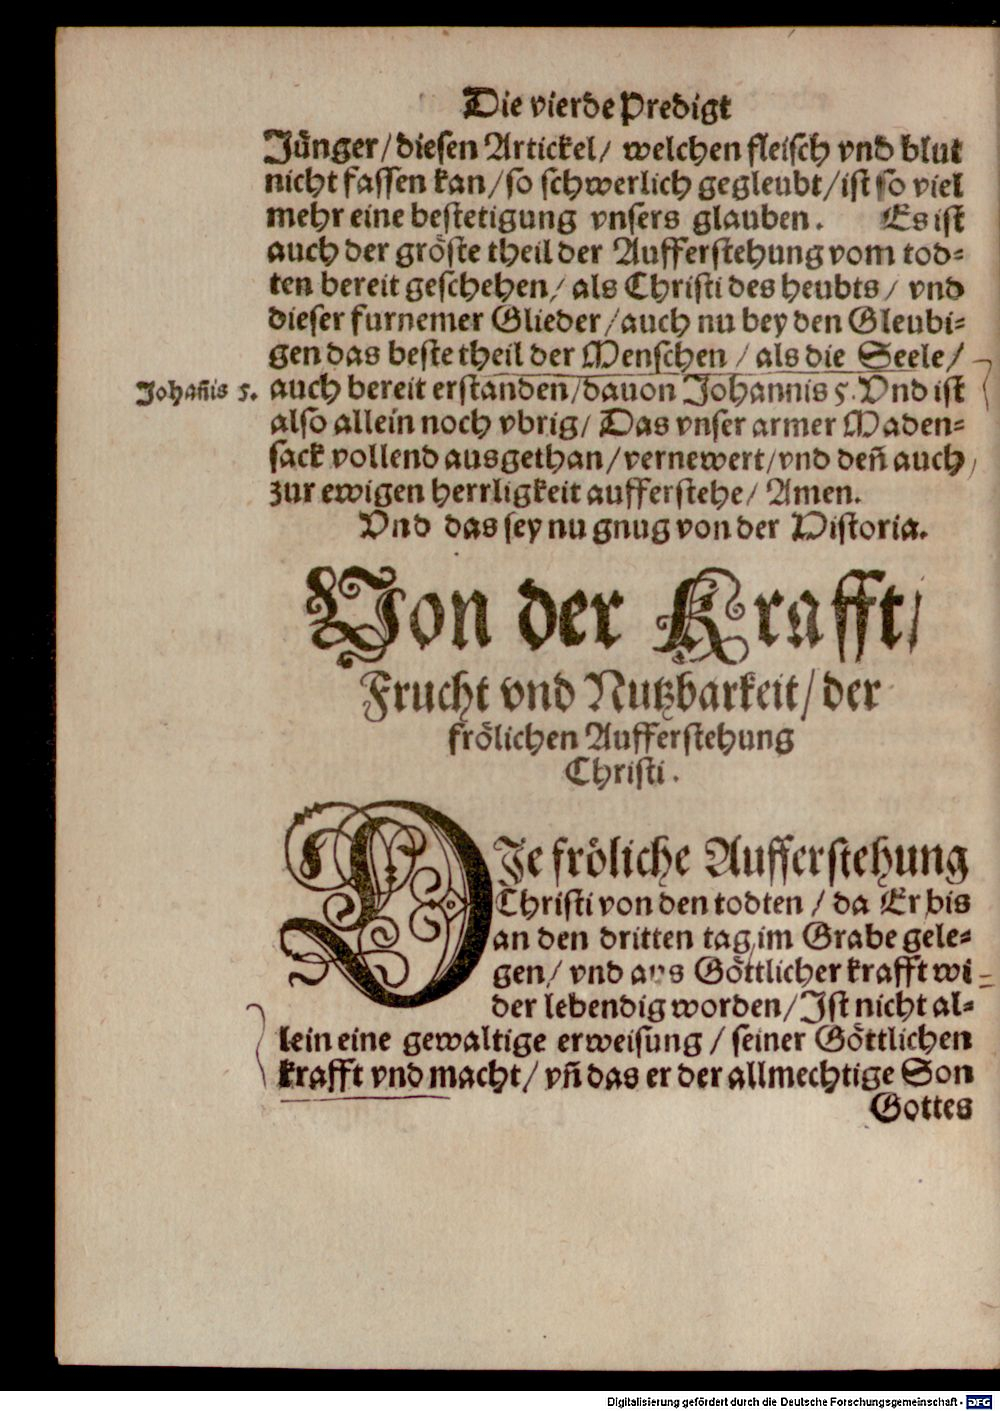 Die vierde Predigt
Jünger/ diesen Artickel/ welchen fleisch vnd blut
nicht fassen kan/ so schwerlich gegleubt/ ist so viel
mehr eine bestetigung vnsers glauben. Es ist
auch der gröste theil der Aufferstehung vom tod-
ten bereit geschehen/ als Christi des heubts/ vnd
dieser furnemer Glieder/ auch nu bey den Gleubi-
gen das beste theil der Menschen / als die Seele/
Johañis 5.
auch bereit erstanden/ dauon Johannis 5. Vnd ist
also allein noch vbrig/ Das vnser armer Maden-
sack vollend ausgethan/ vernewert/ vnd deñ auch
zur ewigen herrligkeit aufferstehe/ Amen.
Vnd das sey nu gnug von der Historia.
Von der Krafft/
Frucht vnd Nutzbarkeit/ der
frölichen Aufferstehung
Christi.
DIe fröliche Aufferstehung
Christi von den todten / da Er bis
an den dritten tag im Grabe gele-
gen/ vnd aus Göttlicher krafft wi-
der lebendig worden/ Ist nicht al-
lein eine gewaltige erweisung / seiner Göttlichen
krafft vnd macht/ vñ das er der allmechtige Son
Gottes
Digitalisierung gefördert durch die Deutsche Forschungsgemeinschaft - DFG